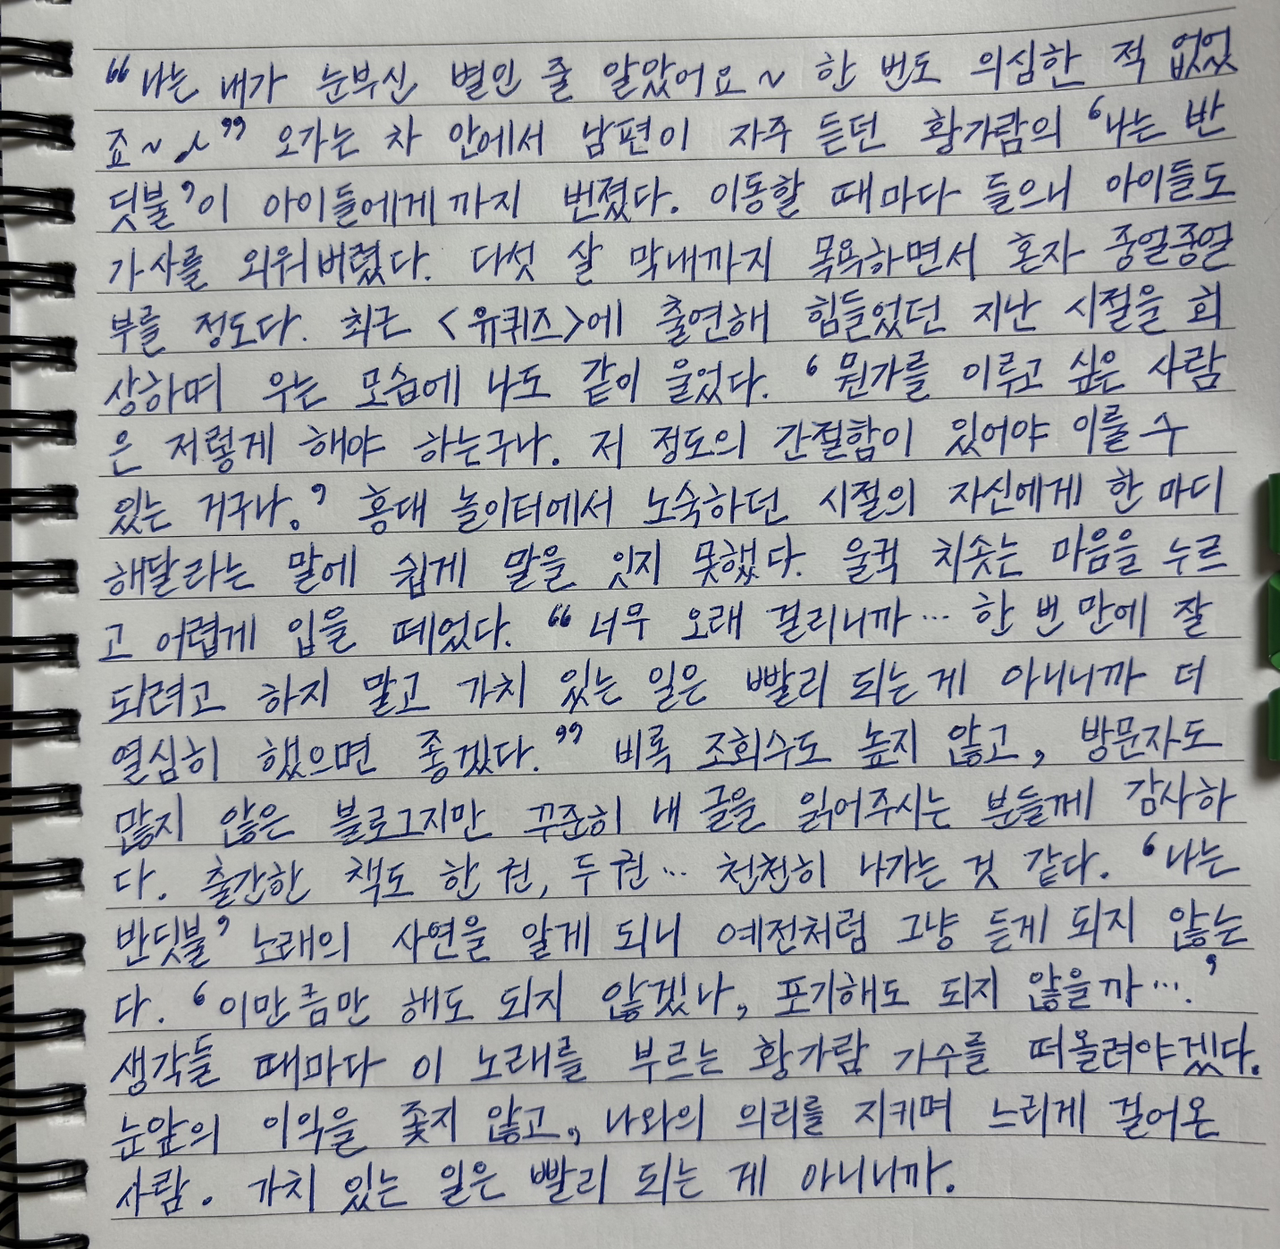 “나는 내가 눈부신 별인 줄 알았어요~ 한 번도 의심한 적 없었
죠~♪” 오가는 차 안에서 남편이 자주 듣던 황가람의 ‘나는 반
딧불’이 아이들에게까지 번졌다. 이동할 때마다 들으니 아이들도
가사를 외워버렸다. 다섯 살 막내까지 목욕하면서 혼자 중얼중얼
부를 정도다. 최근 <유퀴즈>에 출연해 힘들었던 지난 시절을 회
상하며 우는 모습에 나도 같이 울었다. ‘뭔가를 이루고 싶은 사람
은 저렇게 해야 하는구나. 저 정도의 간절함이 있어야 이룰 수
있는 거구나.’ 홍대 놀이터에서 노숙하던 시절의 자신에게 한 마디
해달라는 말에 쉽게 말을 잇지 못했다. 울컥 치솟는 마음을 누르
고 어렵게 입을 떼었다. “너무 오래 걸리니까… 한 번만에 잘
되려고 하지 말고 가치 있는 일은 빨리 되는 게 아니니까 더
열심히 했으면 좋겠다.” 비록 조회수도 높지 않고, 방문자도
많지 않은 블로그지만 꾸준히 내 글을 읽어주시는 분들께 감사하
다. 출간한 책도 한 권, 두 권… 천천히 나가는 것 같다. ‘나는
반딧불’ 노래의 사연을 알게 되니 예전처럼 그냥 듣게 되지 않는
다. ‘이만큼만 해도 되지 않겠나, 포기해도 되지 않을까….’
생각들 때마다 이 노래를 부르는 황가람 가수를 떠올려야겠다.
눈앞의 이익을 좇지 않고, 나와의 의리를 지키며 느리게 걸어온
사람. 가치 있는 일은 빨리 되는 게 아니니까.